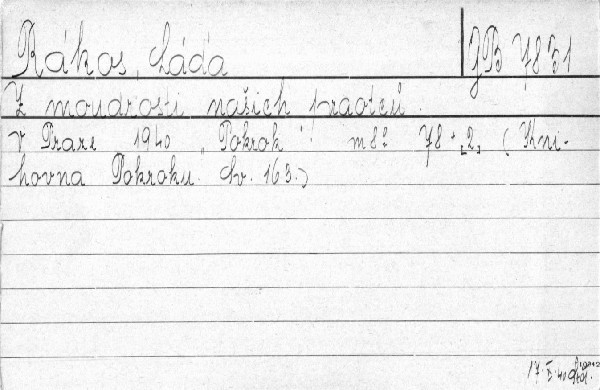 Rákos, Láďa JB 78 51
Z moudrosti našich praotců.
V Praze 1940 „Pokrok“ m 8° 78 + [2] (Kni-
hovna Pokroku. Sv. 163.)
17. 40